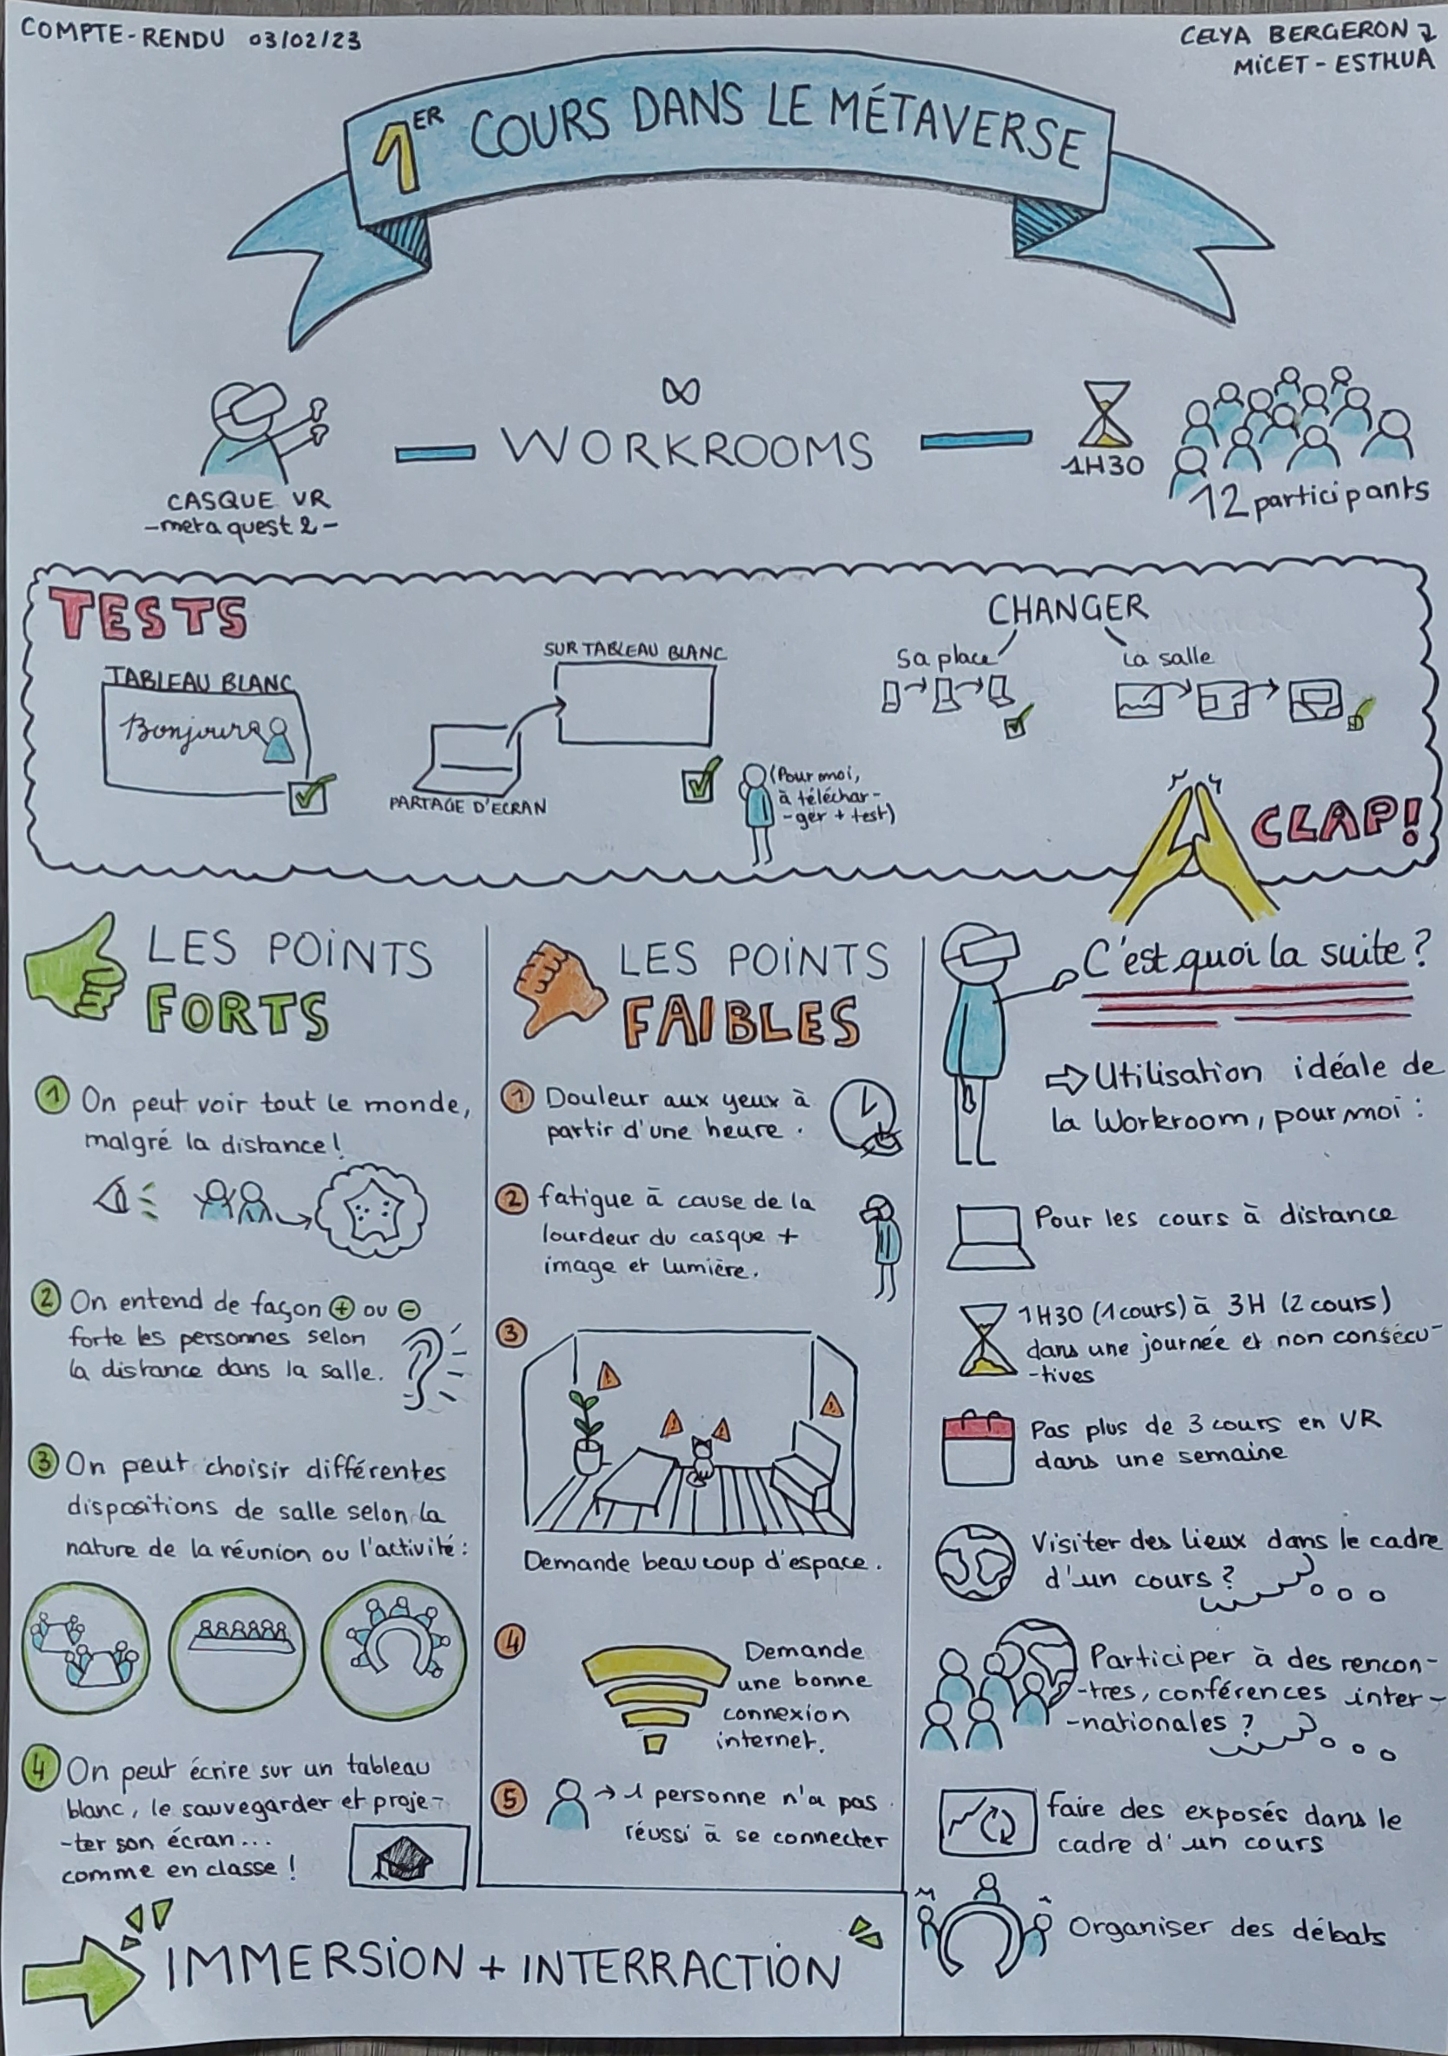 COMPTE-RENDU 03/02/23
CELYA BERGERON
MICET - ESTHUA
1ER COURS DANS LE MÉTAVERSE
CASQUE VR
-meta quest 2-
WORKROOMS
1H30
12 participants
TESTS
TABLEAU BLANC
Bonjour
SUR TABLEAU BLANC
PARTAGE D'ECRAN
(Pour moi,
à téléchar-
-ger + test)
CHANGER
Sa place
La salle
CLAP!
LES POINTS
FORTS
1 On peut voir tout le monde,
malgré la distance!
2 On entend de façon + ou -
forte les personnes selon
la distance dans la salle.
3 On peut choisir différentes
dispositions de salle selon la
nature de la réunion ou l'activité:
4 On peut écrire sur un tableau
blanc, le sauvegarder et proje-
-ter son écran...
comme en classe!
LES POINTS
FAIBLES
1 Douleur aux yeux à
partir d'une heure.
2 fatigue à cause de la
lourdeur du casque +
image et lumière.
3
Demande beaucoup d'espace.
4 Demande
une bonne
connexion
internet.
5 → 1 personne n'a pas
réussi à se connecter
C'est quoi la suite?
⇨ Utilisation idéale de
la Workroom, pour moi:
Pour les cours à distance
1H30 (1 cours) à 3H (2 cours)
dans une journée et non consécu-
-tives
Pas plus de 3 cours en VR
dans une semaine
Visiter des lieux dans le cadre
d'un cours?
Participer à des rencon-
-tres, conférences inter-
-nationales?
faire des exposés dans le
cadre d'un cours
Organiser des débats
IMMERSION + INTERRACTION